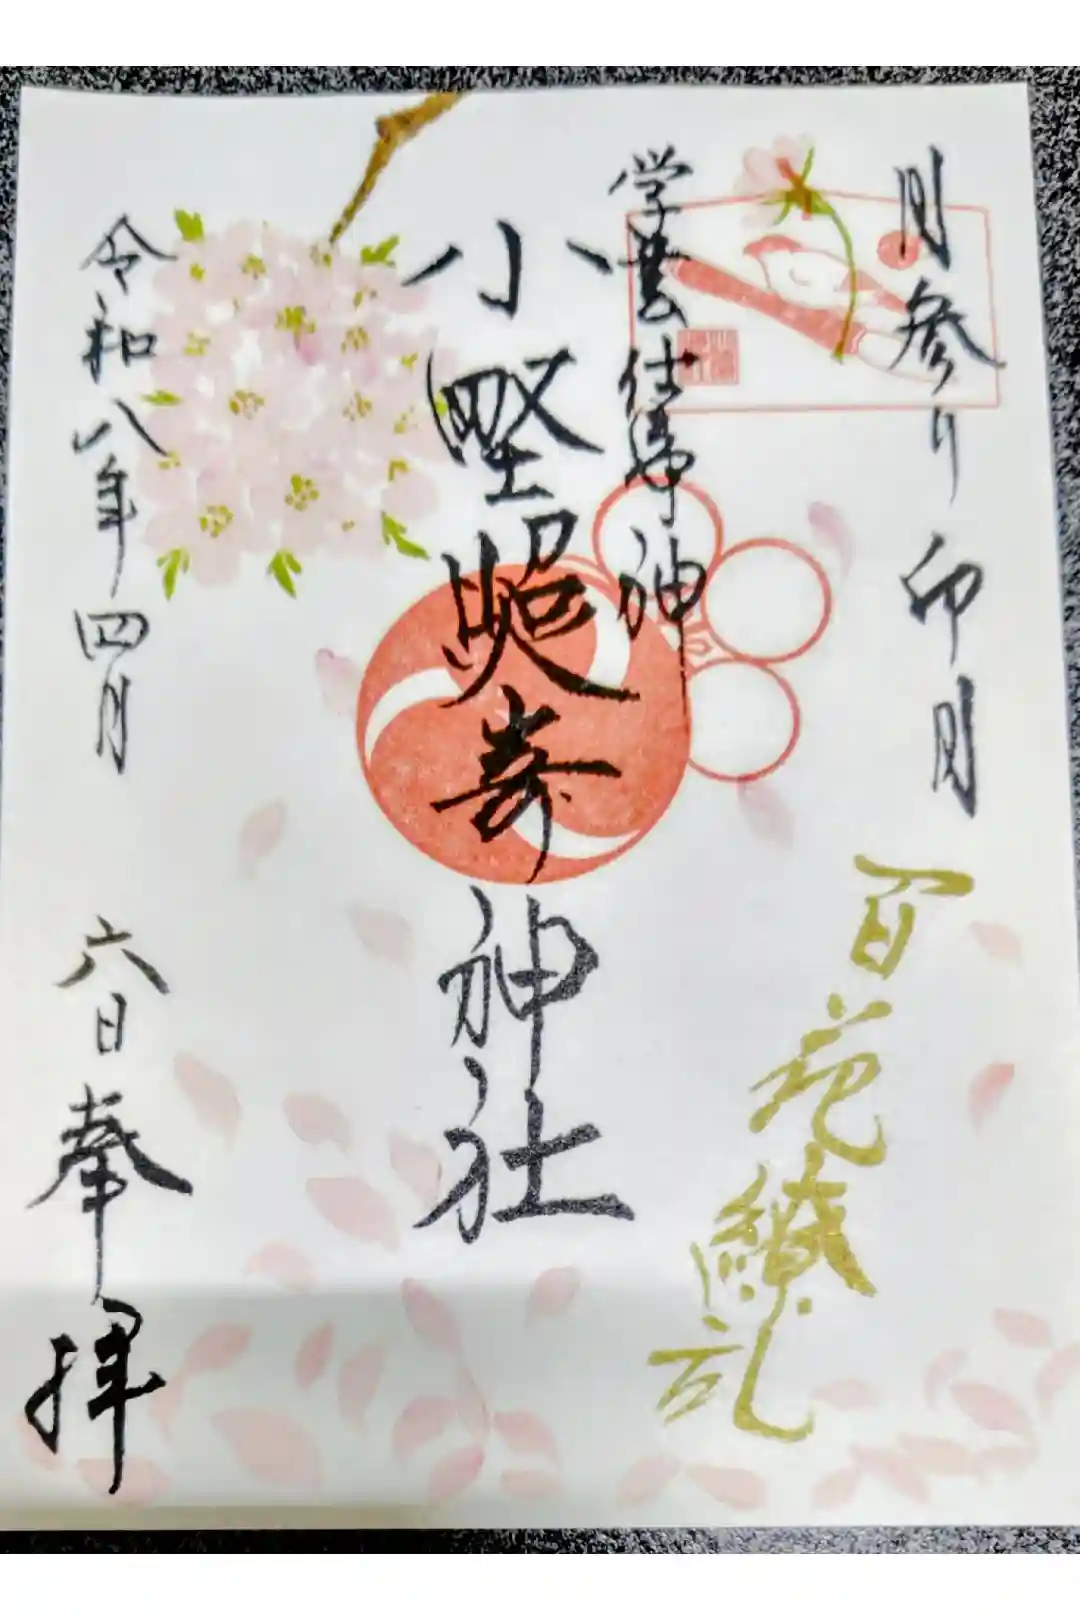 月参り 卯月
百花繚乱
学芸仕事神
小野照嵜神社
令和八年四月六日奉拝